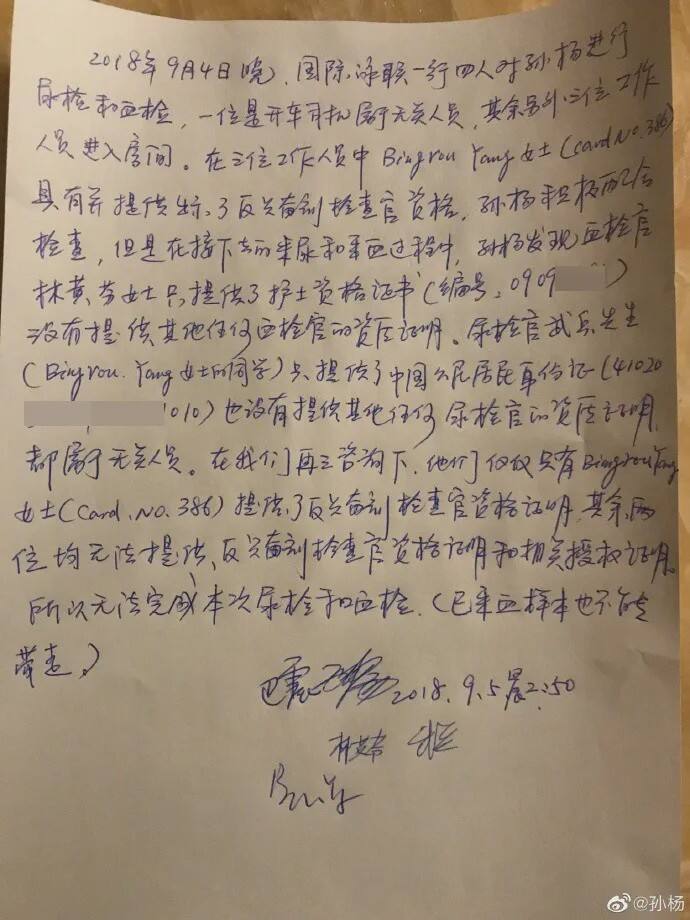 2018年9月4日晚,国际泳联一行四人对孙杨进行
尿检和血检,一位是开车司机属于无关人员,其余另外三位工作
人员进入房间。在三位工作人员中Bingrou Yang女士(card No.386)
具有并提供出示了反兴奋剂检查官资格,孙杨积极配合
检查,但是在接下去的采尿和采血过程中,孙杨发现血检官
林黄 女士只提供了护士资格证书(编号:0909
没有提供其他任何血检官的资质证明。尿检官 先生
(Bingrou.Yang女士的同学)只提供了中国公民居民身份证(41020
1010)也没有提供其他任何尿检官的资质证明,
都属于无关人员。在我们再三咨询下,他们仅仅只有Bingrou Yang
女士(Card.No.386)提供了反兴奋剂检查官资格证明,其余两
位均无法提供反兴奋剂检查官资格证明和相关授权证明。
所以无法完成本次尿检和血检.(已采血样本也不能
带走.)
2018.9.5晨2:50
@孙杨